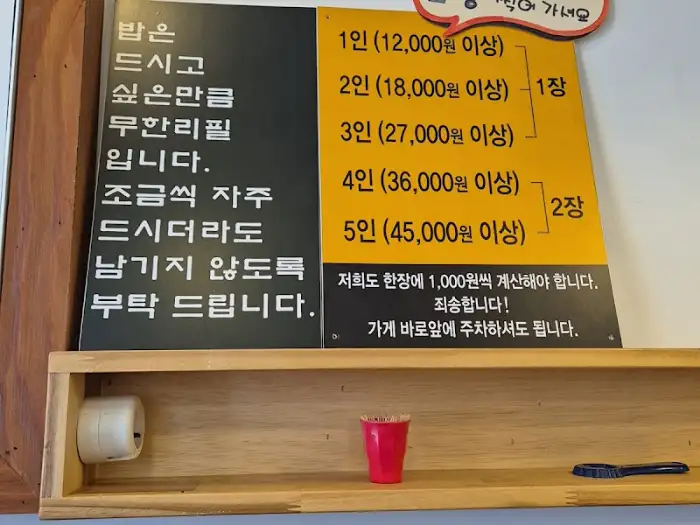 밥은
드시고
싶은만큼
무한리필
입니다.
조금씩 자주
드시더라도
남기지 않도록
부탁 드립니다.
찍어 가세요
1인 (12,000원 이상)
2인 (18,000원 이상)
3인 (27,000원 이상)
1장
4인 (36,000원 이상)
5인 (45,000원 이상)
2장
저희도 한장에 1,000원씩 계산해야 합니다.
죄송합니다!
가게 바로앞에 주차하셔도 됩니다.